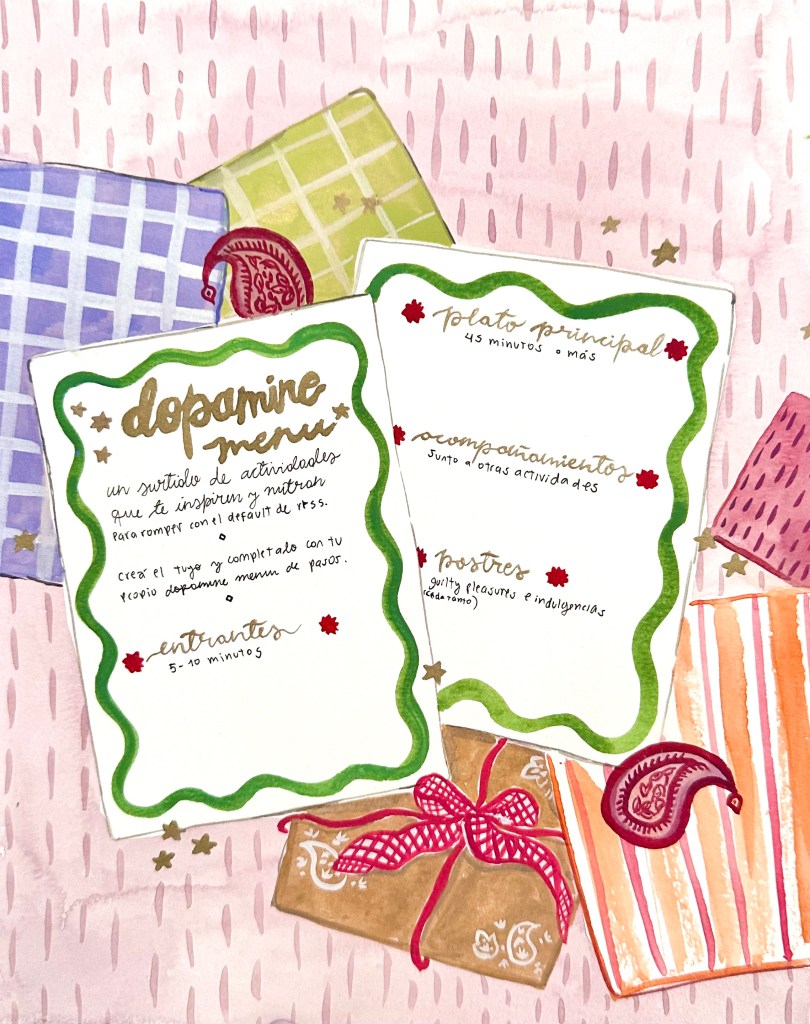 dopamine
menu
un surtido de actividades
que te inspiren y nutran
para romper con el default de rrss.
crea el tuyo y complétalo con tu
propio dopamine menu de pasos.
entrantes
5-10 minutos
plato principal
45 minutos o más
acompañamientos
junto a otras actividades
postres
guilty pleasures e indulgencias
(cada tanto)